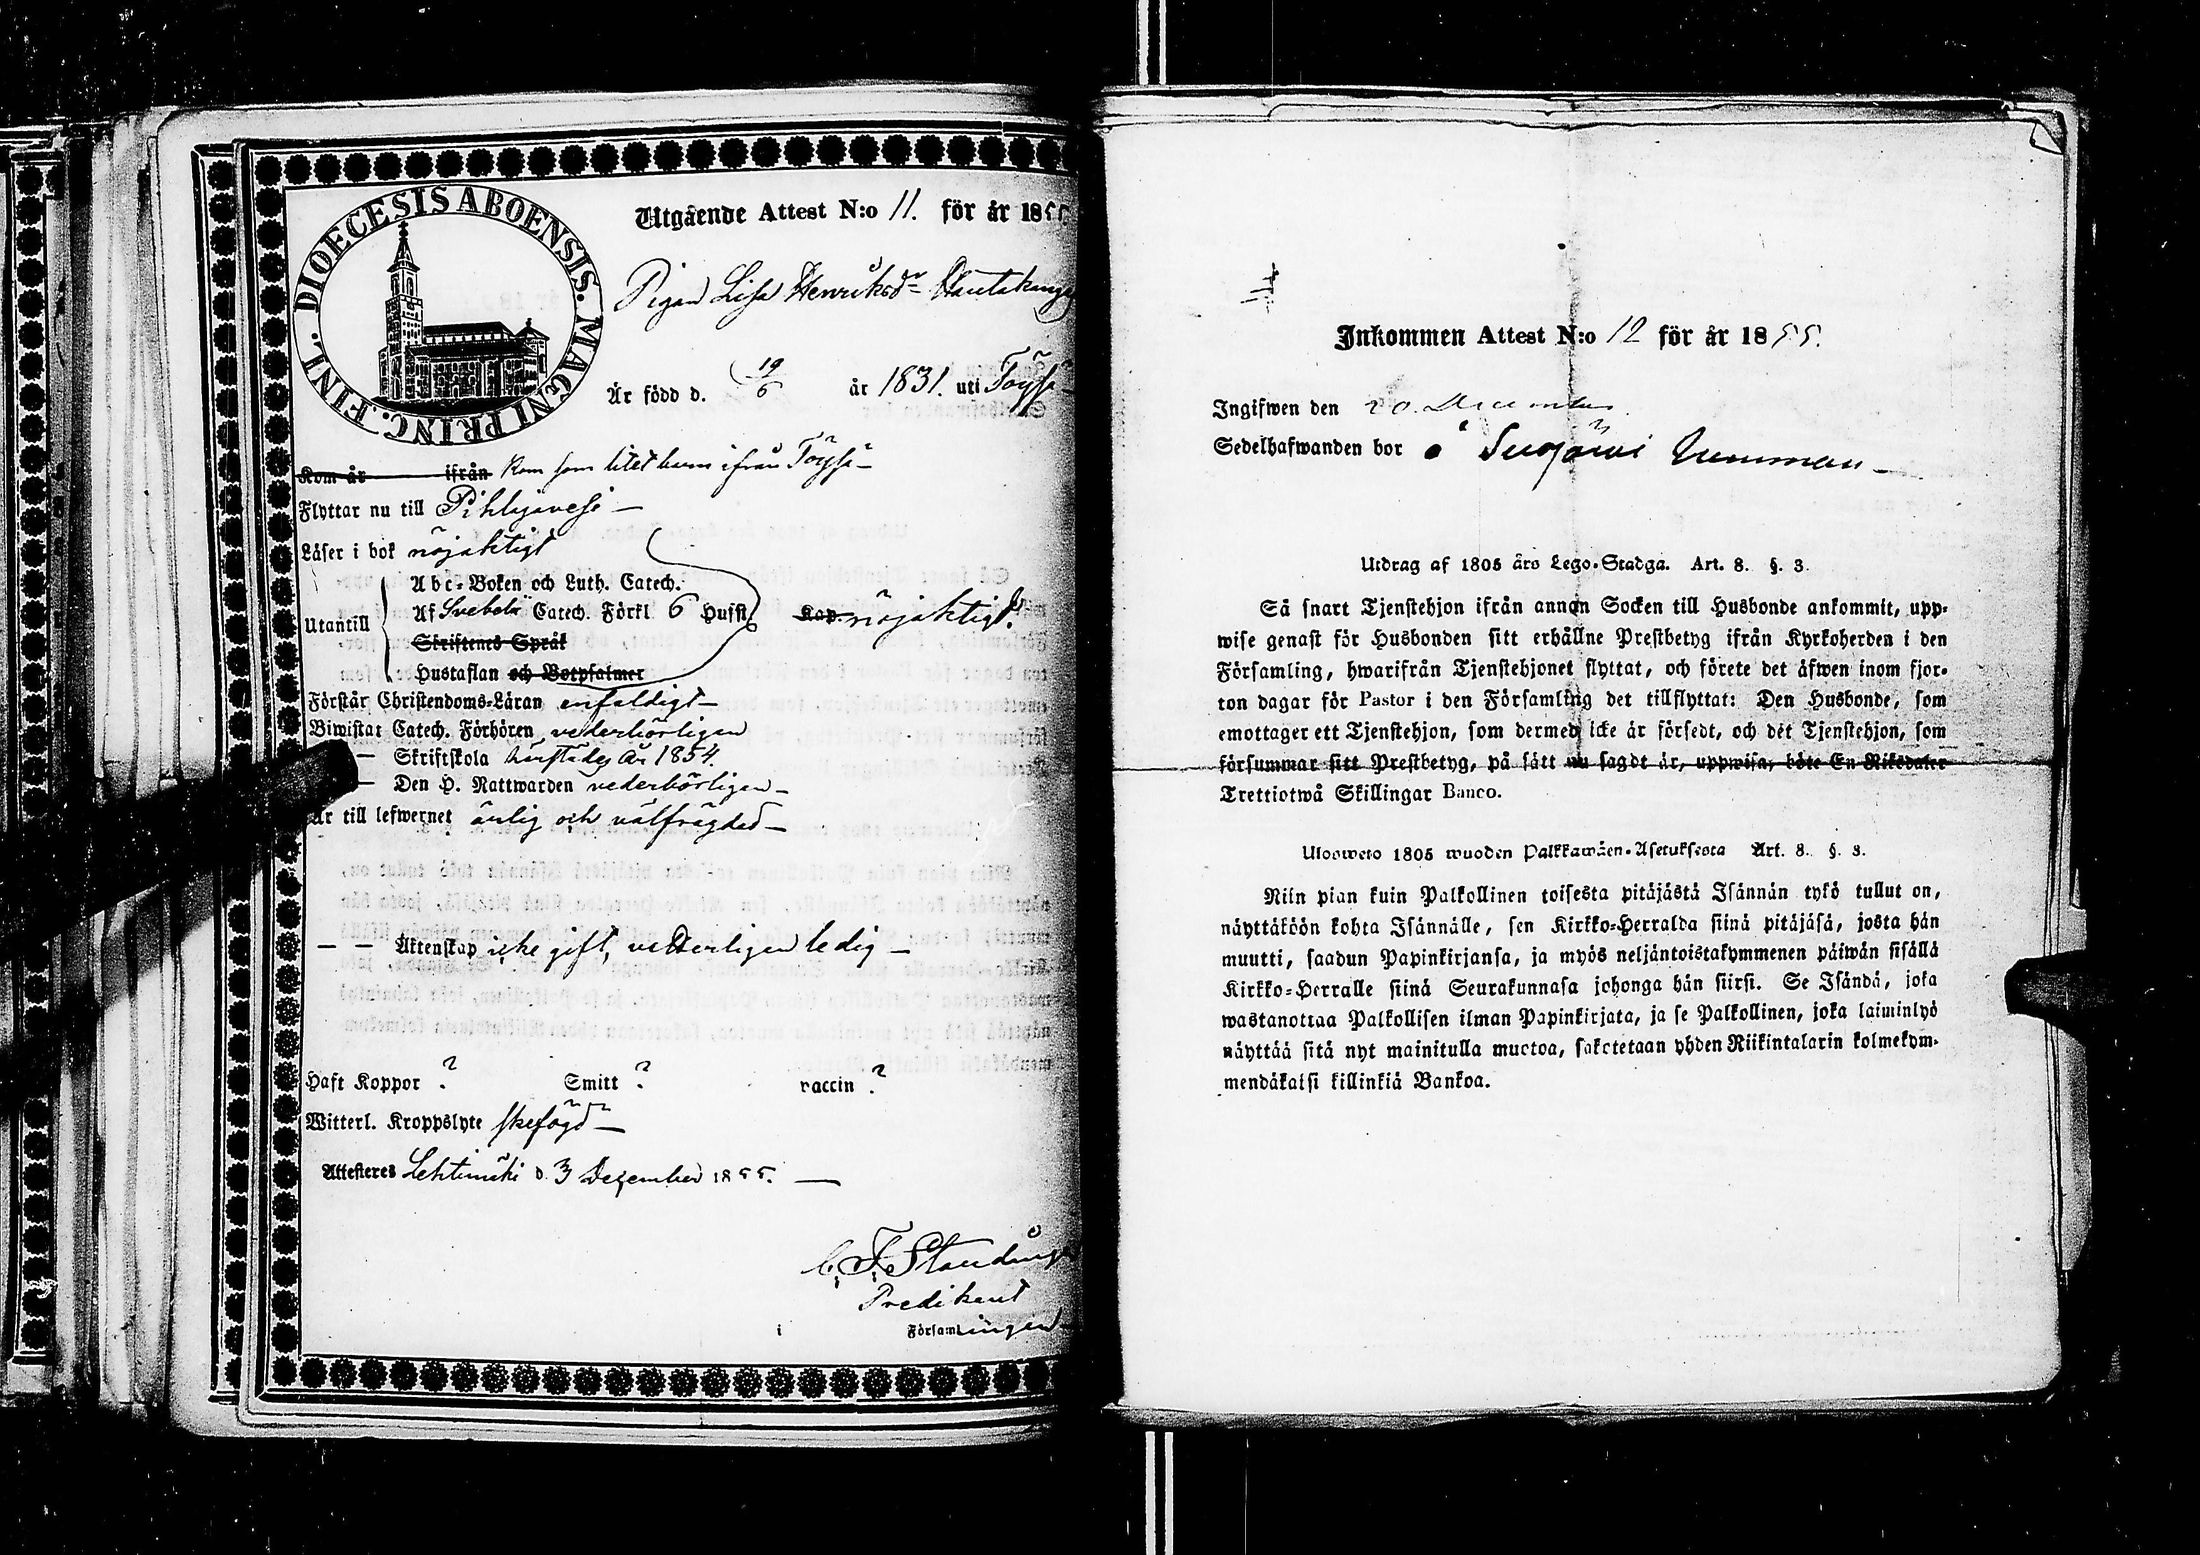 DIOECESIS ABOENSIS. MAGNI PRINC. FINL.
Utgående Attest N:o 11. för år 1855
Pigan Lisa Henriksdr Hautakangas
Är född d. 19/6 år 1831. uti Töysä
Kom år ifrån Kom som litet barn ifrån Töysä –
Flyttar nu till Pihlajavesi –
Läser i bok nöjaktigt
Abc-Boken och Luth. Catech.
Utantill Af Svebelii Catech. Förkl. 6 Hufst. Kap. nöjaktigt.
Skriftenes Språk
Hustaflan och Botpsalmer
Förstår Christendoms-Läran enfaldigt –
Biwistat Catech. Förhören vederbörligen
– Skriftskola år 1854.
– Den H. Nattwarden vederbörligen –
Är till lefwernet ärlig och välfrägdad –
– – Äktenskap icke gift, vetterligen ledig –
Haft Koppor ? Smitt ? vaccin ?
Witterl. Kroppslyte skefögd –
Attesteres Lehtimäki d. 3 December 1855. –
C. F. Standång
Predikant
i Församlingen
Inkommen Attest N:o 12 för år 1855.
Ingifwen den 20. December
Sedelhafwanden bor å
Utdrag af 1805 års Lego-Stadga. Art. 8. §. 3.
Så snart Tjenstehjon ifrån annan Socken till Husbonde ankommit, upp-
wise genast för Husbonden sitt erhållne Prestbetyg ifrån Kyrkoherden i den
Församling, hwarifrån Tjenstehjonet flyttat, och förete det äfwen inom fjor-
ton dagar för Pastor i den Församling det tillflyttat: Den Husbonde, som
emottager ett Tjenstehjon, som dermed icke är försedt, och det Tjenstehjon, som
försummar sitt Prestbetyg, på sätt nu sagdt är, uppwisa, böte En Riksdaler
Trettiotwå Skillingar Banco.
Ulosweto 1805 wuoden Palkkawäen-Asetuksesta Art. 8. §. 3.
Niin pian kuin Palkollinen toisesta pitäjästä Isännän tykö tullut on,
näyttäköön kohta Isännälle, sen Kirkko-Herralda siinä pitäjäsä, josta hän
muutti, saadun Papinkirjansa, ja myös neljäntoistakymmenen päiwän sisällä
Kirkko-Herralle siinä Seurakunnasa johonga hän siirsi. Se Isändä, joka
wastanottaa Palkollisen ilman Papinkirjata, ja se Palkollinen, joka laiminlyö
näyttää sitä nyt mainitulla muotoa, sakotetaan yhden Riikintalarin kolmekym-
mendäkaksi killinkiä Bankoa.